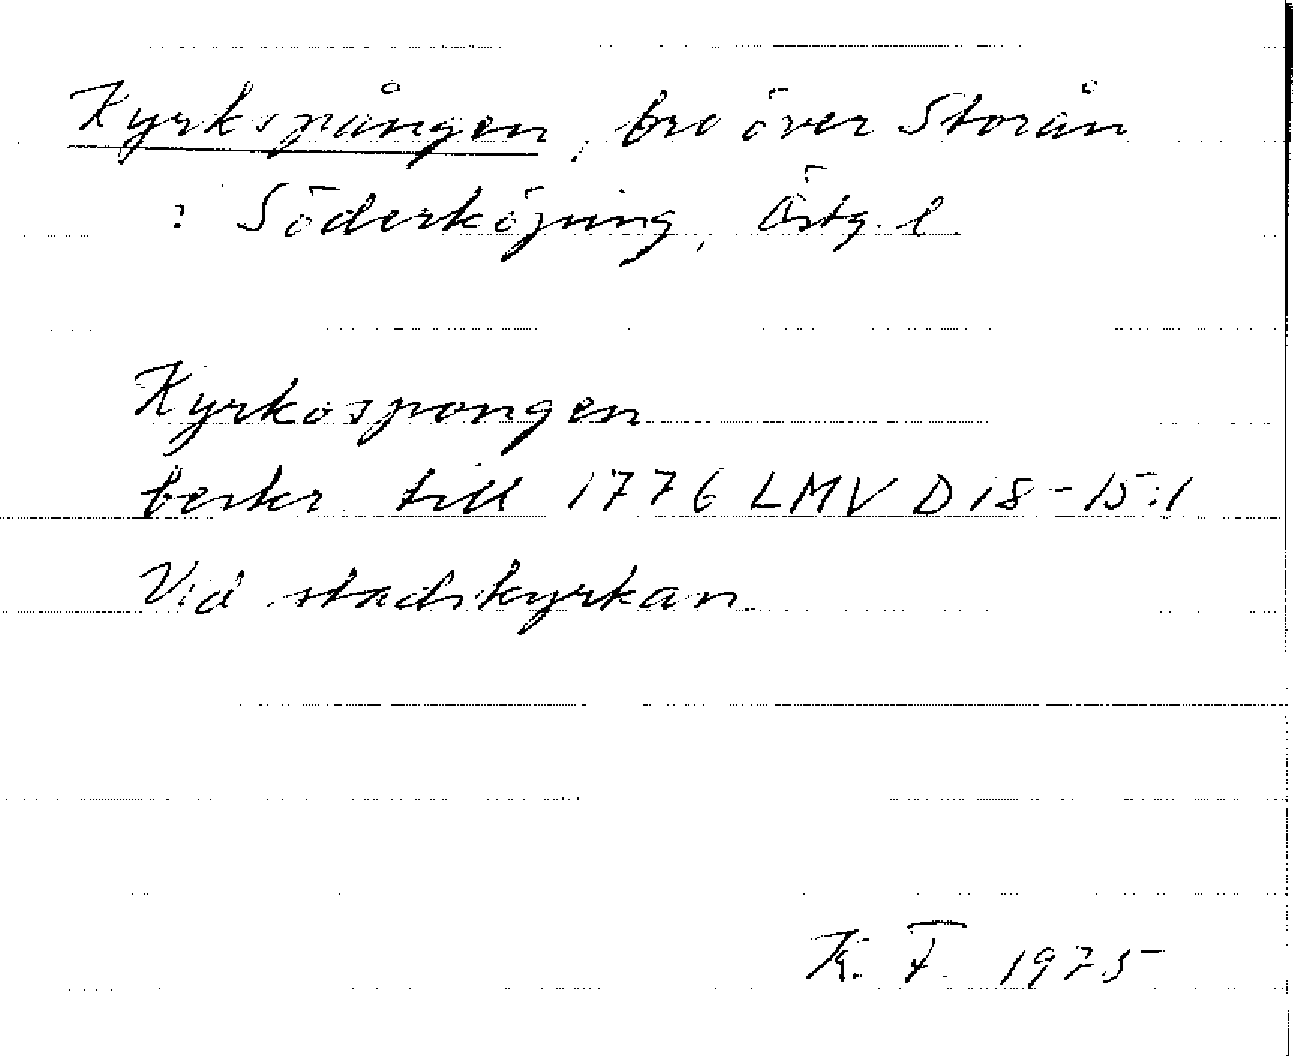 Kyrkspången, bro över Storån
i Söderköping, Östg. l.
Kyrkospongen
beskr till 1776 LMV D18-15:1
Vid stadskyrkan
K. F. 1975